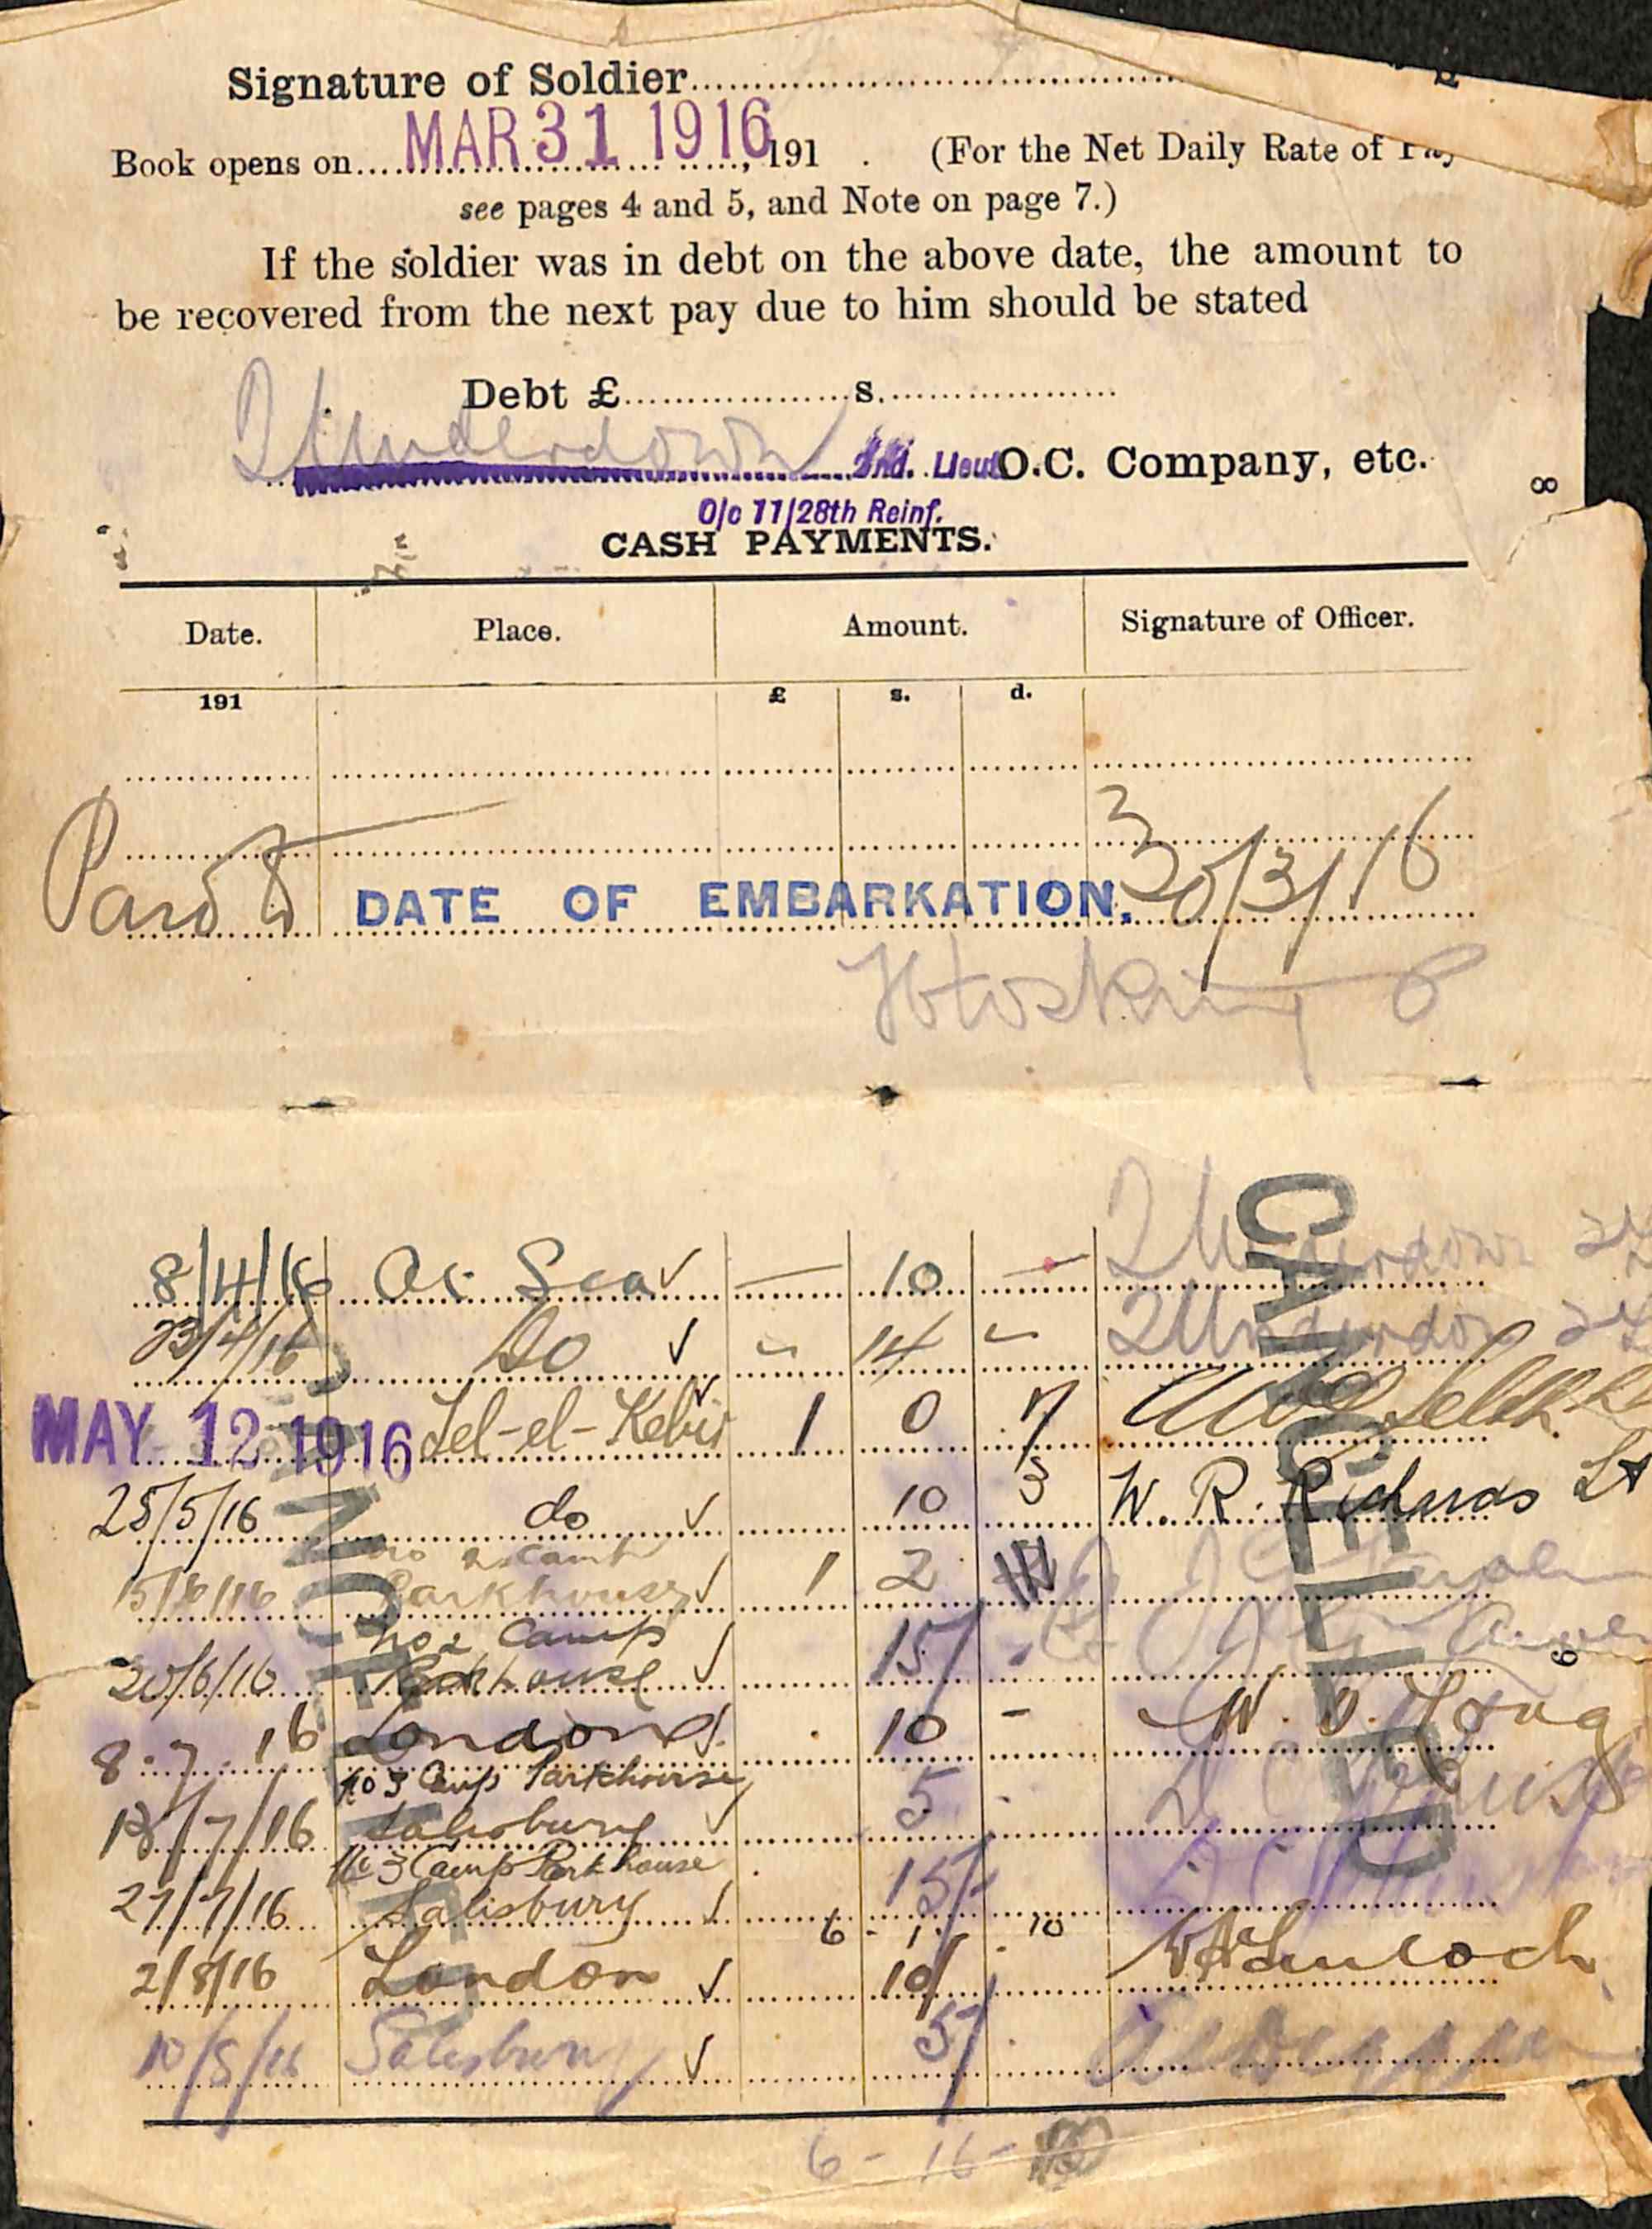 Signature of Soldier
Book opens on MAR 31 1916, 191 . (For the Net Daily Rate of Pay
see pages 4 and 5, and Note on page 7.)
If the soldier was in debt on the above date, the amount to
be recovered from the next pay due to him should be stated
Debt £ s.
Underdown 2nd. Lieut O.C. Company, etc.
O/c 11/28th Reinf.
8
CASH PAYMENTS.
Date. Place. Amount. Signature of Officer.
191 £ s. d.
Paid to DATE OF EMBARKATION. 30/3/16
Hosking
8/4/16 At Sea ✓ — 10 — Underdown
23/4/16 Do ✓ - 14 - Underdown
MAY 12 1916 Tel-el-Kebir ✓ 1 0 7
25/5/16 do ✓ 10 3 W. R. Richards Lt
No 2 Camp
15/6/16 Parkhouse ✓ 1 2
No 2 Camp
20/6/16 Parkhouse ✓ 15/ -
9
8.7.16 London ✓ 10 - W.
No 3 Camp Parkhouse
18/7/16 Salisbury ✓ 5 -
No 3 Camp Parkhouse
27/7/16 Salisbury ✓ 15/-
6 - 1 - 10
2/8/16 London ✓ 10/
10/8/16 Salisbury ✓ 5/
6 - 16 -
CANCELLED
CANCELLED